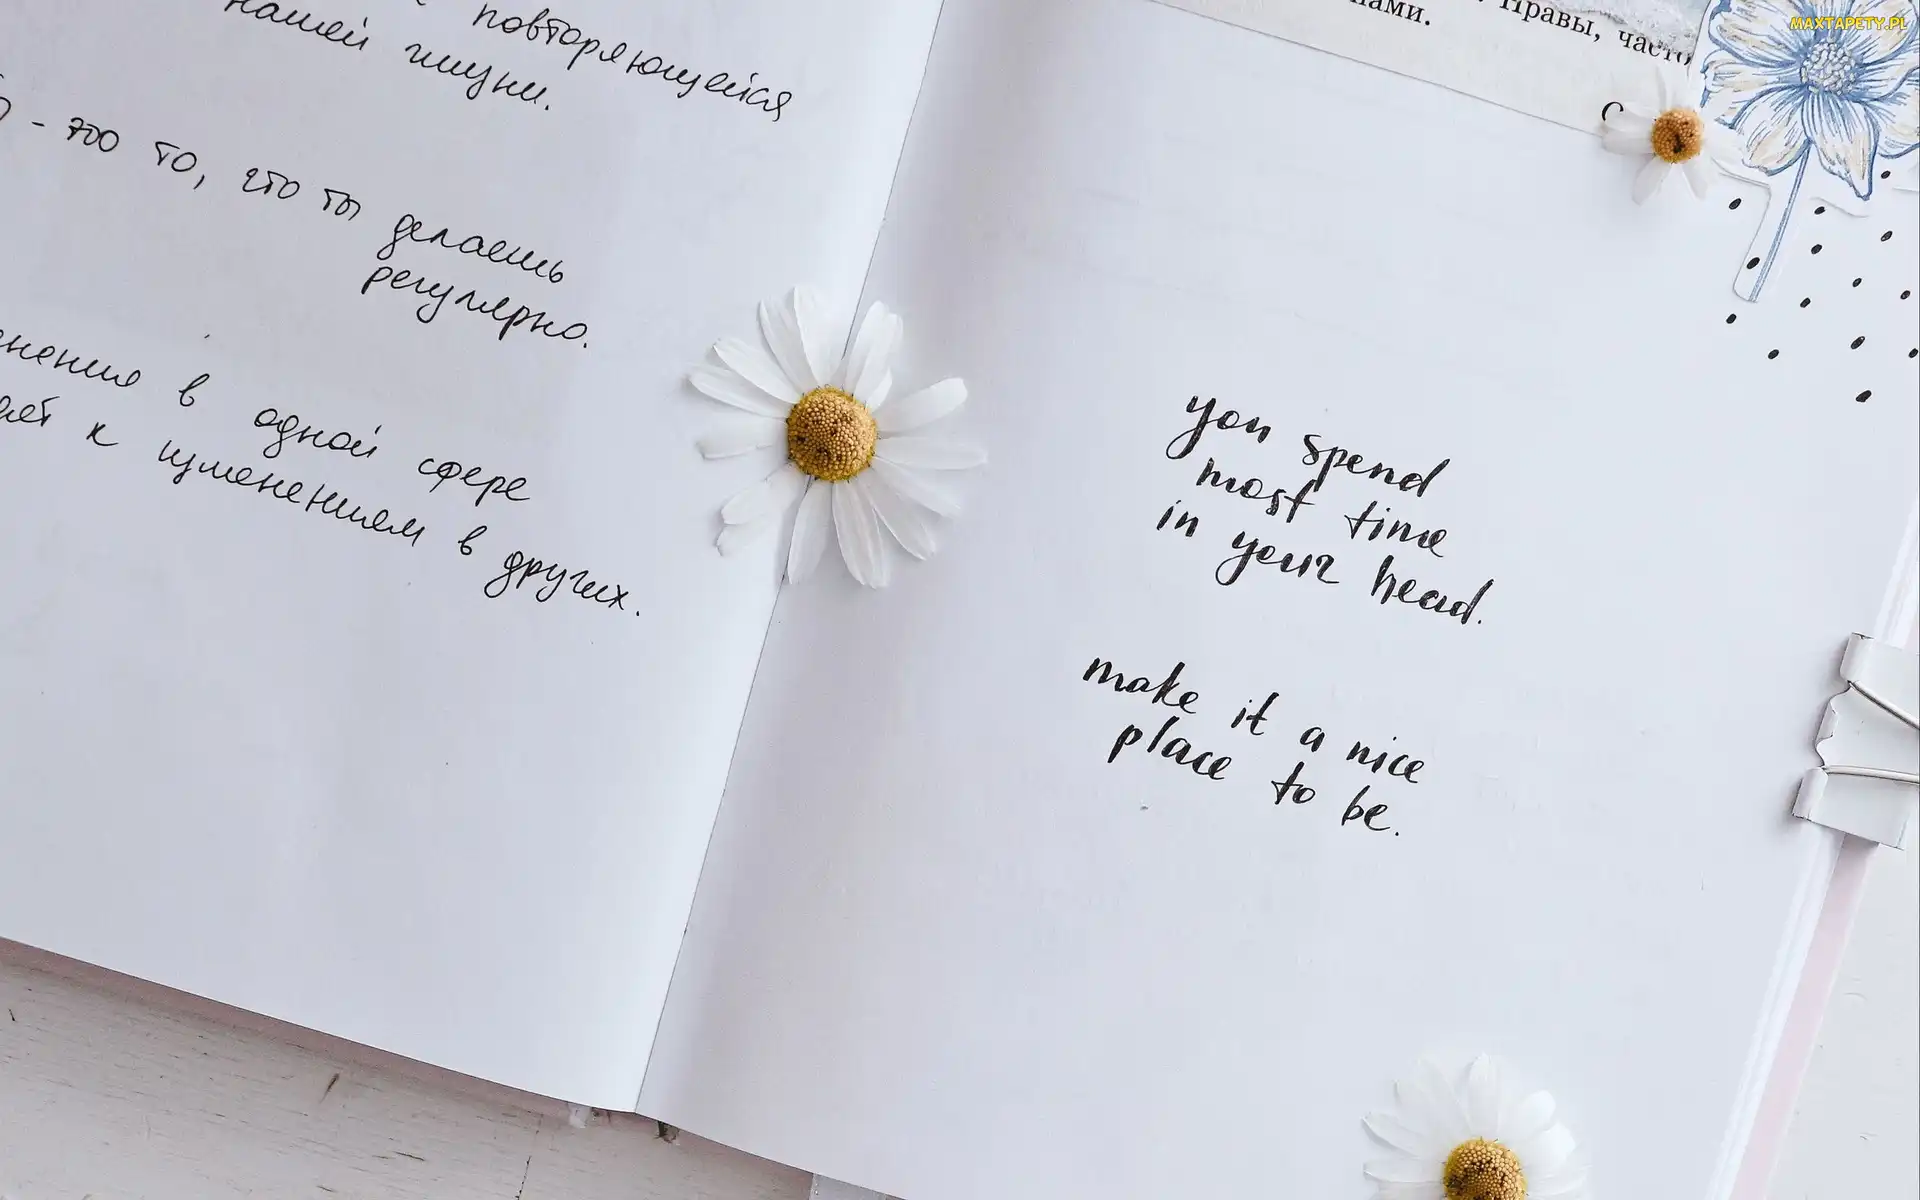 повторяющейся
нашей жизни.
- это то, что ты делаешь
регулярно.
в одной сфере
к изменениям в других.
нами.
Нравы, часто
С
you spend
most time
in your head.
make it a nice
place to be.
MAXTAPETY.PL